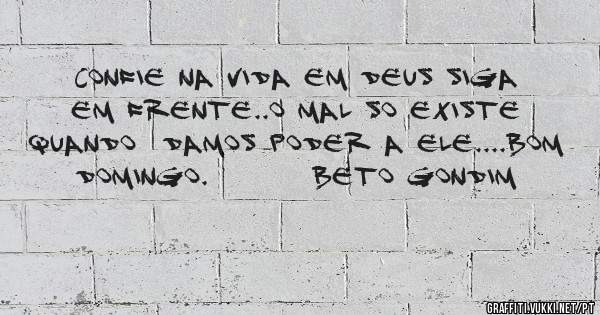 CONFIE NA VIDA EM DEUS SIGA
EM FRENTE..O MAL SO EXISTE
QUANDO DAMOS PODER A ELE....BOM
DOMINGO. BETO GONDIM
GRAFFITI.VUKKI.NET/PT